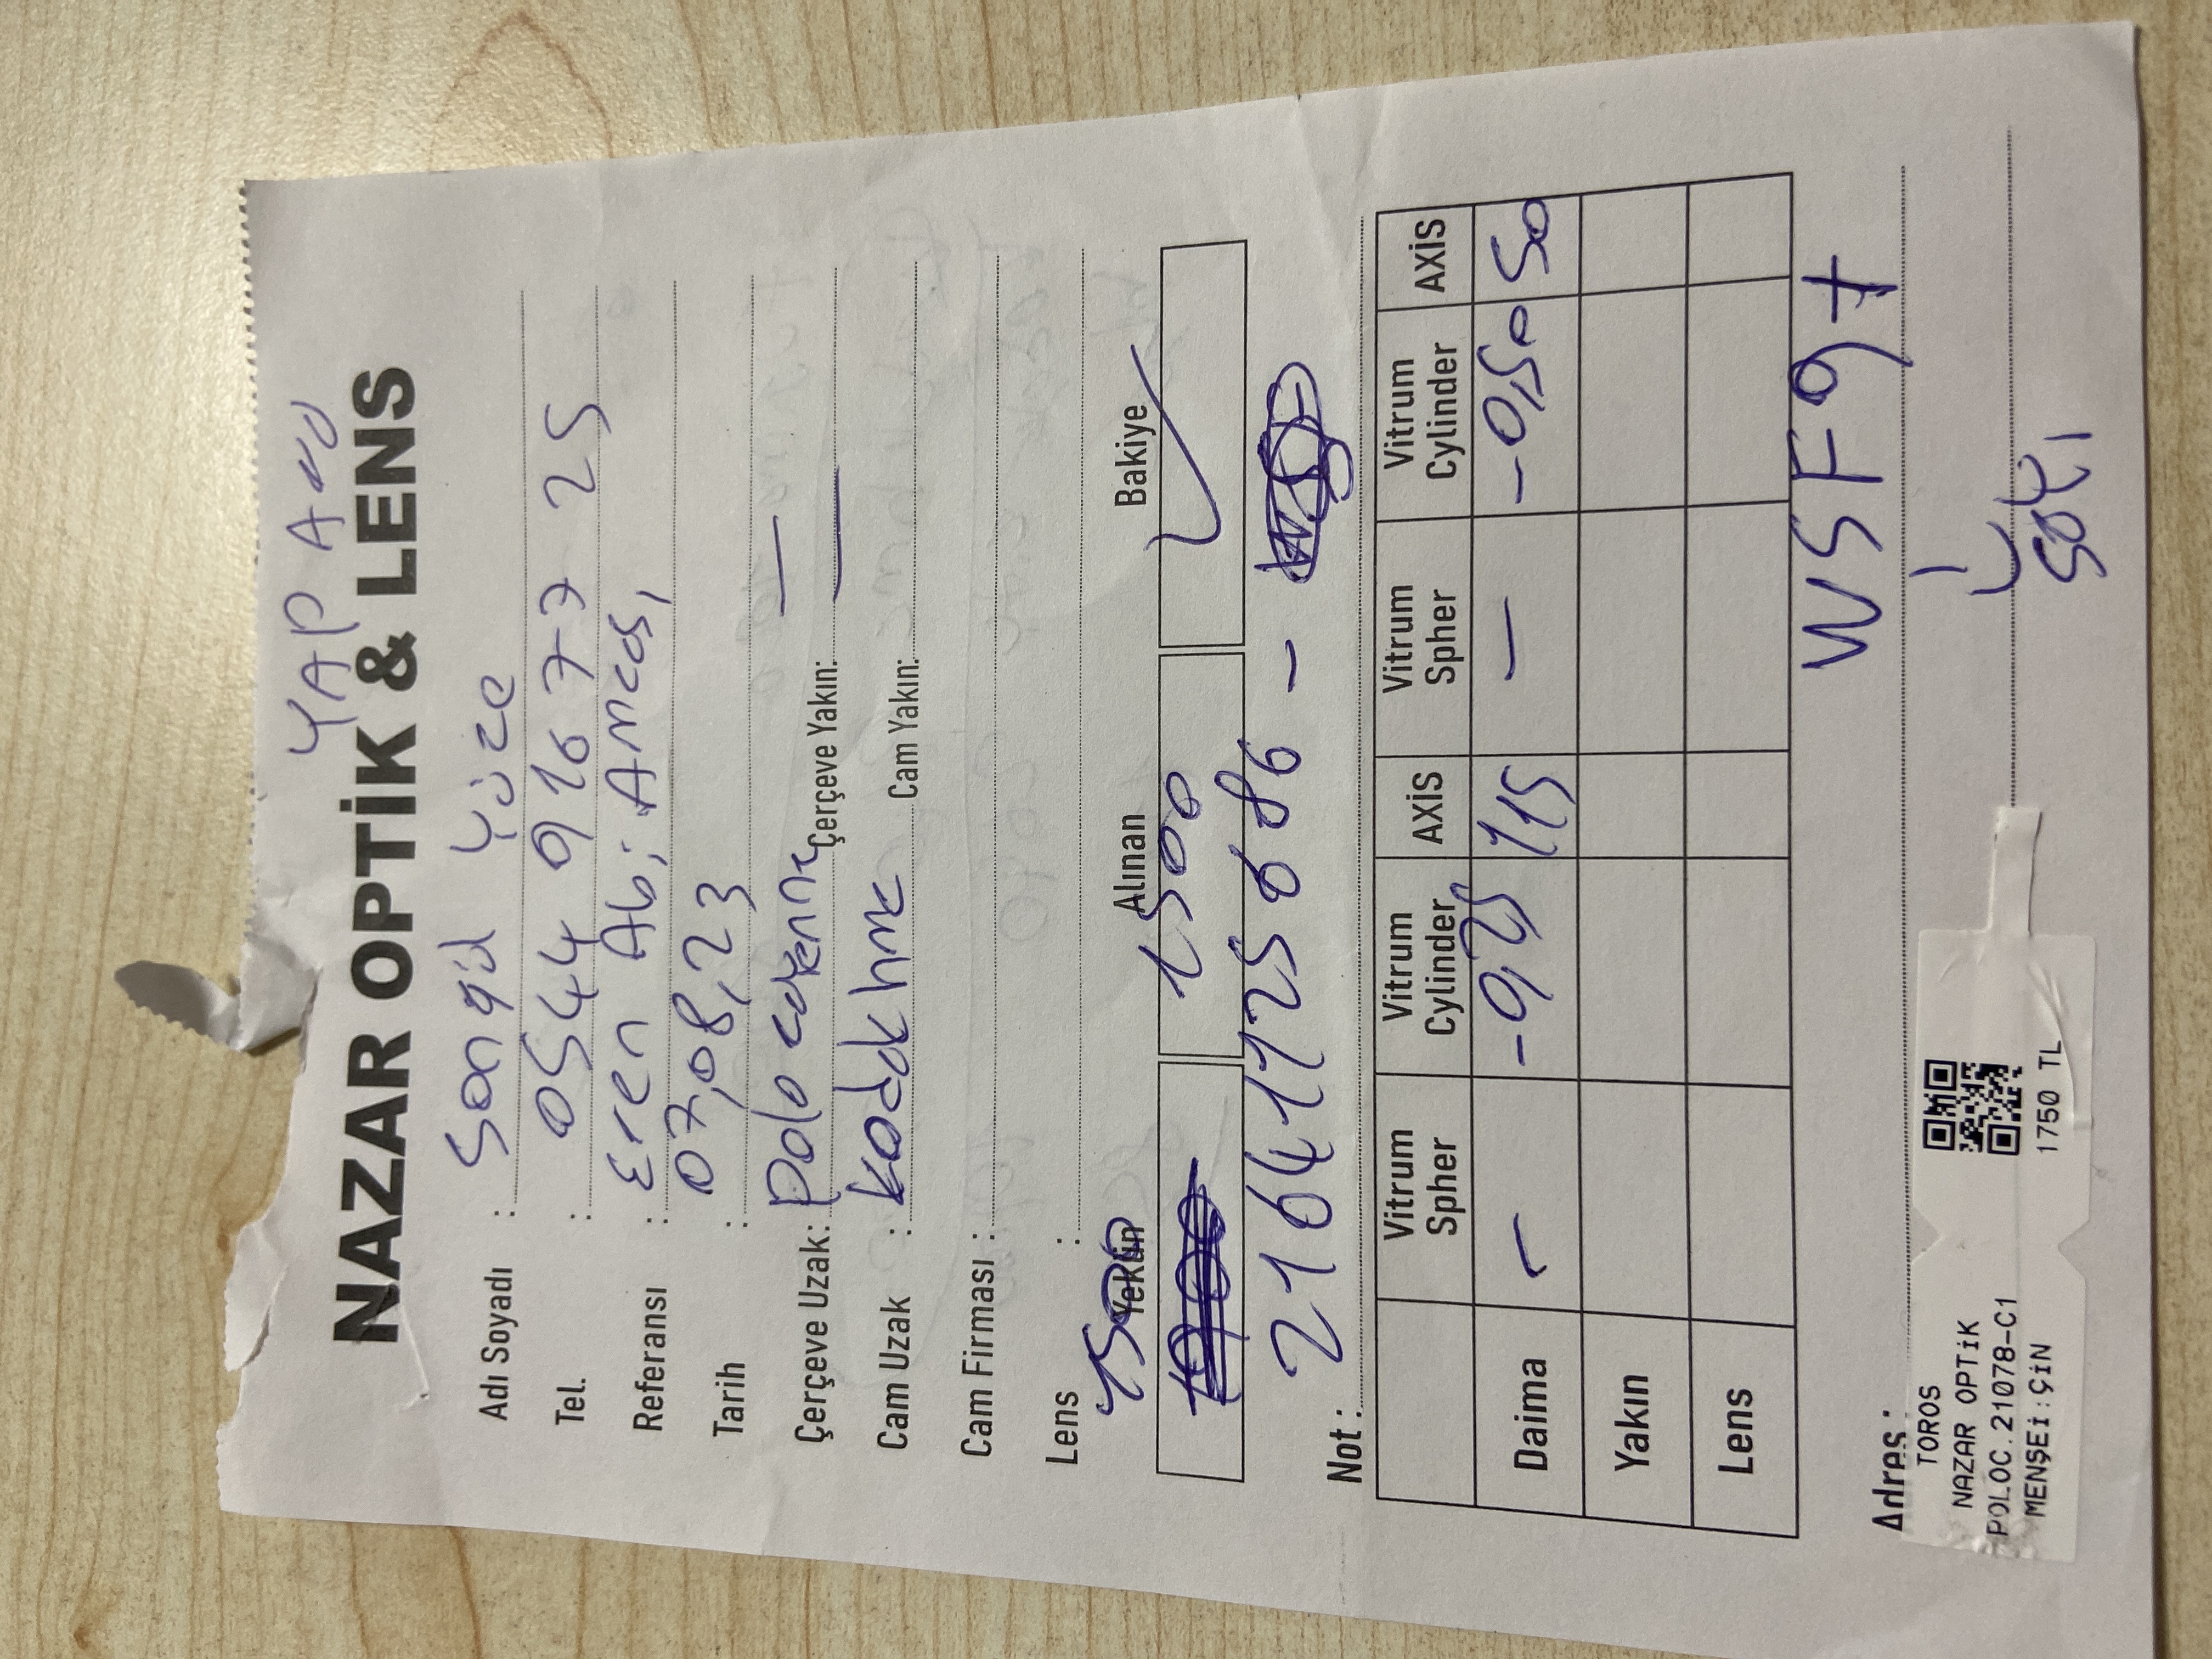 YAP
NAZAR OPTİK & LENS
Adı Soyadı : Songül Yüce
Tel. : 0544 916 77 25
Referansı : Eren Abi Amcası
Tarih : 07,08,23
Çerçeve Uzak: Polo Çerçeve Yakın: —
Cam Uzak : Cam Yakın:
Cam Firması :
Lens :
1500
Yekün Alınan Bakiye
1900 1500 ✓
Not : 21641125686 –
Vitrum Spher Vitrum Cylinder AXİS Vitrum Spher Vitrum Cylinder AXİS
Daima – -0,25 115 – -0,50 50
Yakın
Lens
WSF97
Adres :
TOROS
NAZAR OPTİK
POLOC.21078-C1
MENŞEİ:ÇİN
1750 TL